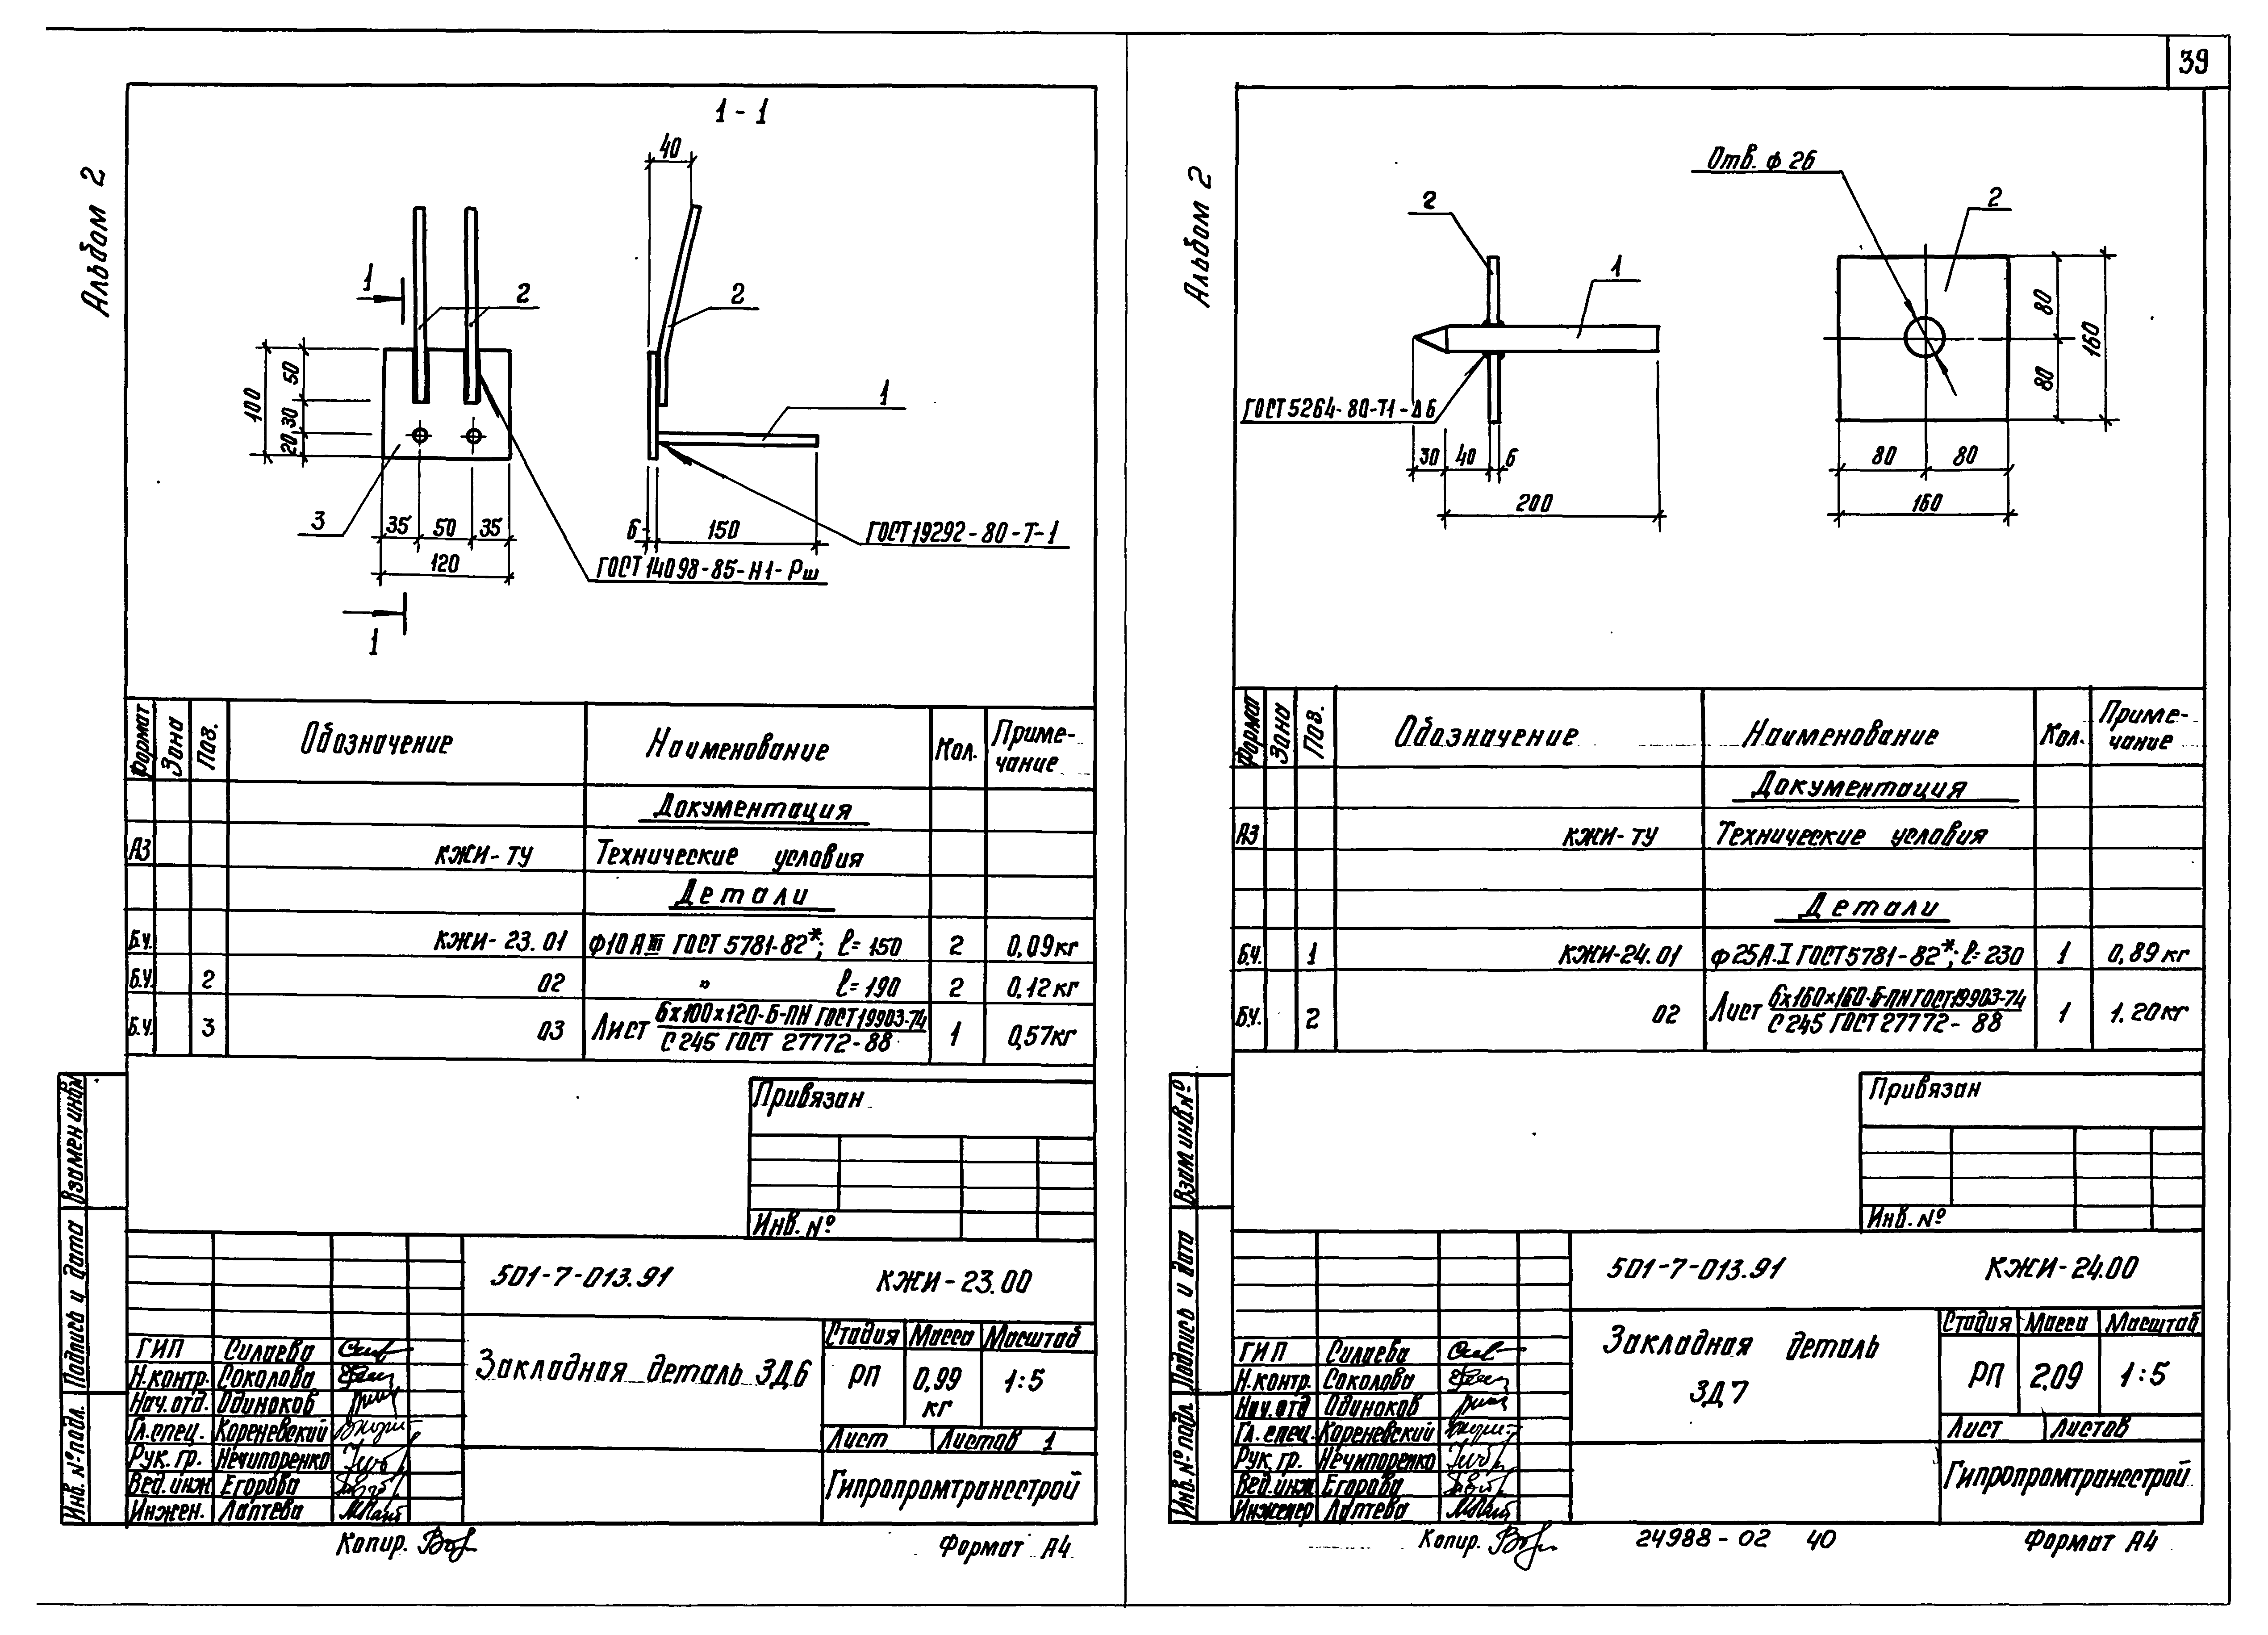 39
Альбом 2
1 - 1
40
1
2
2
50
100
30
20
1
3
35
50
35
120
6
150
ГОСТ 19292-80-Т-1
ГОСТ 14098-85-Н1-Рш
1
Формат
Зона
Поз.
Обозначение
Наименование
Кол.
Приме-
чание
Документация
А3
КЖИ-ТУ
Технические условия
Детали
Б.Ч.
КЖИ-23.01
Ф10АIII ГОСТ 5781-82*; ℓ=150
2
0,09кг
Б.Ч.
2
02
" ℓ=190
2
0,12кг
Б.Ч.
3
03
Лист 6х100х120-Б-ПН ГОСТ19903-74
С245 ГОСТ 27772-88
1
0,57кг
Привязан
Инв. №
Взамен инв№
Подпись и дата
Инв. №подл.
501-7-013.91
КЖИ-23.00
ГИП Силаева
Н.контр. Соколова
Нач.отд. Одиноков
Гл.спец. Кореневский
Рук. гр. Нечипоренко
Вед.инж Егорова
Инжен. Лаптева
Закладная деталь ЗД6
Стадия Масса Масштаб
РП 0,99 1:5
кг
Лист Листов 1
Гипропромтрансстрой
Копир.
Формат А4
Альбом 2
Отв. ф 26
2
2
1
ГОСТ 5264-80-Т1-Δ6
30
40
6
200
80
80
160
80
80
160
Формат
Зона
Поз.
Обозначение
Наименование
Кол.
Приме-
чание
Документация
А3
КЖИ-ТУ
Технические условия
Детали
Б.Ч.
1
КЖИ-24.01
Ф25А-I ГОСТ5781-82*; ℓ=230
1
0,89кг
Б.Ч.
2
02
Лист 6х160х160-Б-ПН ГОСТ19903-74
С245 ГОСТ 27772-88
1
1.20кг
Привязан
Инв. №
Взам инв.№
Подпись и дата
Инв. № подл.
501-7-013.91
КЖИ-24.00
ГИП Силаева
Н.контр. Соколова
Нач. отд Одиноков
Гл. спец. Кореневский
Рук. гр. Нечипоренко
Вед.инж Егорова
Инженер Лаптева
Закладная деталь
ЗД7
Стадия Масса Масштаб
РП 2,09 1:5
Лист Листов
Гипропромтрансстрой
Копир.
24988-02 40
Формат А4